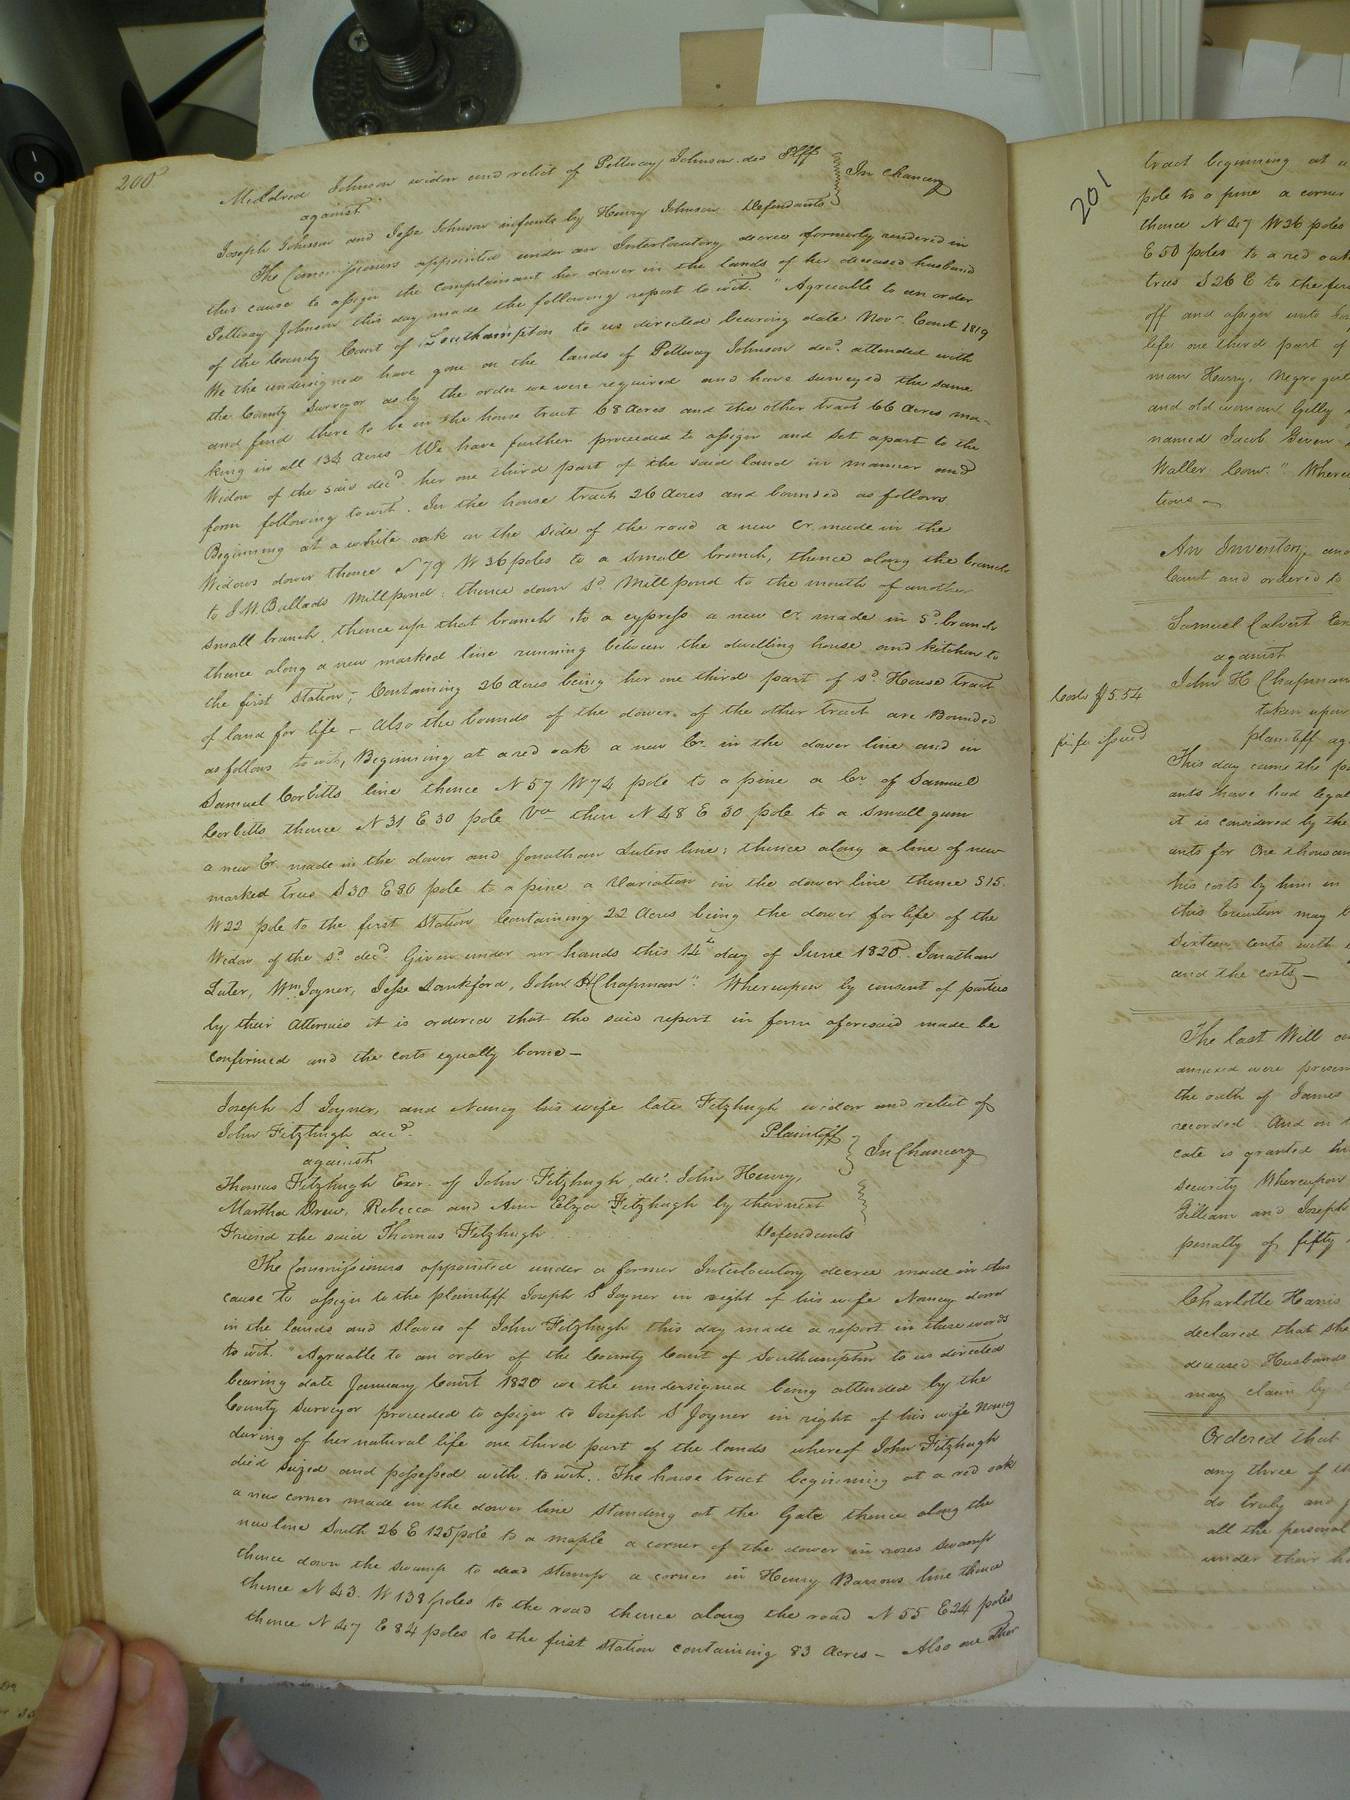 200
Mildred Johnson widow and relict of Pettway Johnson dec Plff
In Chancery
against
Joseph Johnson and Jesse Johnson infants by Henry Johnson Defendants
The Commissioners appointed under an Interlocutory decree formerly rendered in
this cause to assign the complainant her dower in the lands of her deceased husband
Pettway Johnson this day made the following report to wit. "Agreeable to an order
of the County Court of Southampton to us directed bearing date Novr. Court 1819
We the undersigned have gone on the lands of Pettway Johnson decd. attended with
the County Surveyor as by the order we were required and have surveyed the same
and find there to be in the house tract 68 acres and the other tract 66 acres ma-
king in all 134 acres We have further proceeded to assign and set apart to the
Widow of the said decd. her one third part of the said land in manner and
form following towit. In the house tract 26 acres and bounded as follows
Beginning at a white oak on the side of the road a new Cr. made in the
Widows dower thence N 79 W 36 poles to a small branch, thence along the branch
to J. W. Ballards Millpond: thence down sd. Millpond to the mouth of another
small branch, thence up that branch to a cypress a new Cr. made in sd. branch
thence along a new marked line running between the dwelling house and kitchen to
the first Station, Containing 26 acres being her one third part of sd. House tract
of land for life - Also the bounds of the dower of the other tract are Bounded
as follows to wit, Beginning at a red oak a new Cr. in the dower line and in
Samuel Corbitts line thence N 57 W 74 pole to a pine a Cr. of Samuel
Corbitts thence N 31 E 30 pole Va. then N 48 E 30 pole to a small gum
a new Cr. made in the dower and Jonathan Luters line; thence along a line of new
marked trees S 30 E 80 pole to a pine a Variation in the dower line thence S 15.
W 22 pole to the first Station Containing 22 Acres being the dower for life of the
Widow of the sd. decd. Given under our hands this 14th day of June 1820. Jonathan
Luter, Wm. Joyner, Jesse Lankford, John H Chapman". Whereupon by consent of parties
by their Attornies it is ordered that the said report in form aforesaid made be
confirmed and the costs equally borne -
Joseph S Joyner, and Nancy his wife late Fitzhugh widow and relict of
John Fitzhugh decd. Plaintiff
In Chancery
against
Thomas Fitzhugh Exor. of John Fitzhugh decd. John Henry,
Martha Drew, Rebecca and Ann Eliza Fitzhugh by their next
Friend the said Thomas Fitzhugh Defendants
The Commissioners appointed under a former Interlocutory decree made in this
cause to assign to the plaintiff Joseph S Joyner in right of his wife Nancy dower
in the lands and slaves of John Fitzhugh this day made a report in these words
to wit. "Agreeable to an order of the County Court of Southampton to us directed
bearing date January Court 1820 we the undersigned being attended by the
County Surveyor proceeded to assign to Joseph S Joyner in right of his wife Nancy
during of her natural life one third part of the lands whereof John Fitzhugh
died seized and possessed with to wit. The house tract beginning at a red oak
a new corner made in the dower line standing at the Gate thence along the
new line South 26 E 125 pole to a maple a corner of the dower in swamp
thence down the swamp to dead stump a corner in Henry Barrows line thence
thence N 43. W 138 poles to the road thence along the road N 55 E 24 poles
thence N 47 E 84 poles to the first station containing 83 Acres - Also one other
201
tract beginning at a
pole to a pine a corner
thence N 47 W 36 poles
E 50 poles to a red oak
trees S 26 E to the first
off and assign unto
life one third part of
man Harry, Negro girl
and old woman Gilly
named Jacob Given
Waller Comr." Where
tions -
An Inventory and
Court and ordered to
Samuel Calvert
against
John H Chapman
taken upon
plaintiff ag
Costs $5.54
fi fa issued
This day came the p
ants have had legal
it is considered by the
ants for One thousan
his costs by him in
this Execution may
Sixteen cents with
and the costs -
The last Will
annexed were presen
the oath of James
recorded And on
cate is granted
security Whereupon
William and Joseph
penalty of fifty
Charlotte Harris
declared that she
deceased Husbands
may claim by
Ordered that
any three of
do truly and
all the personal
under their